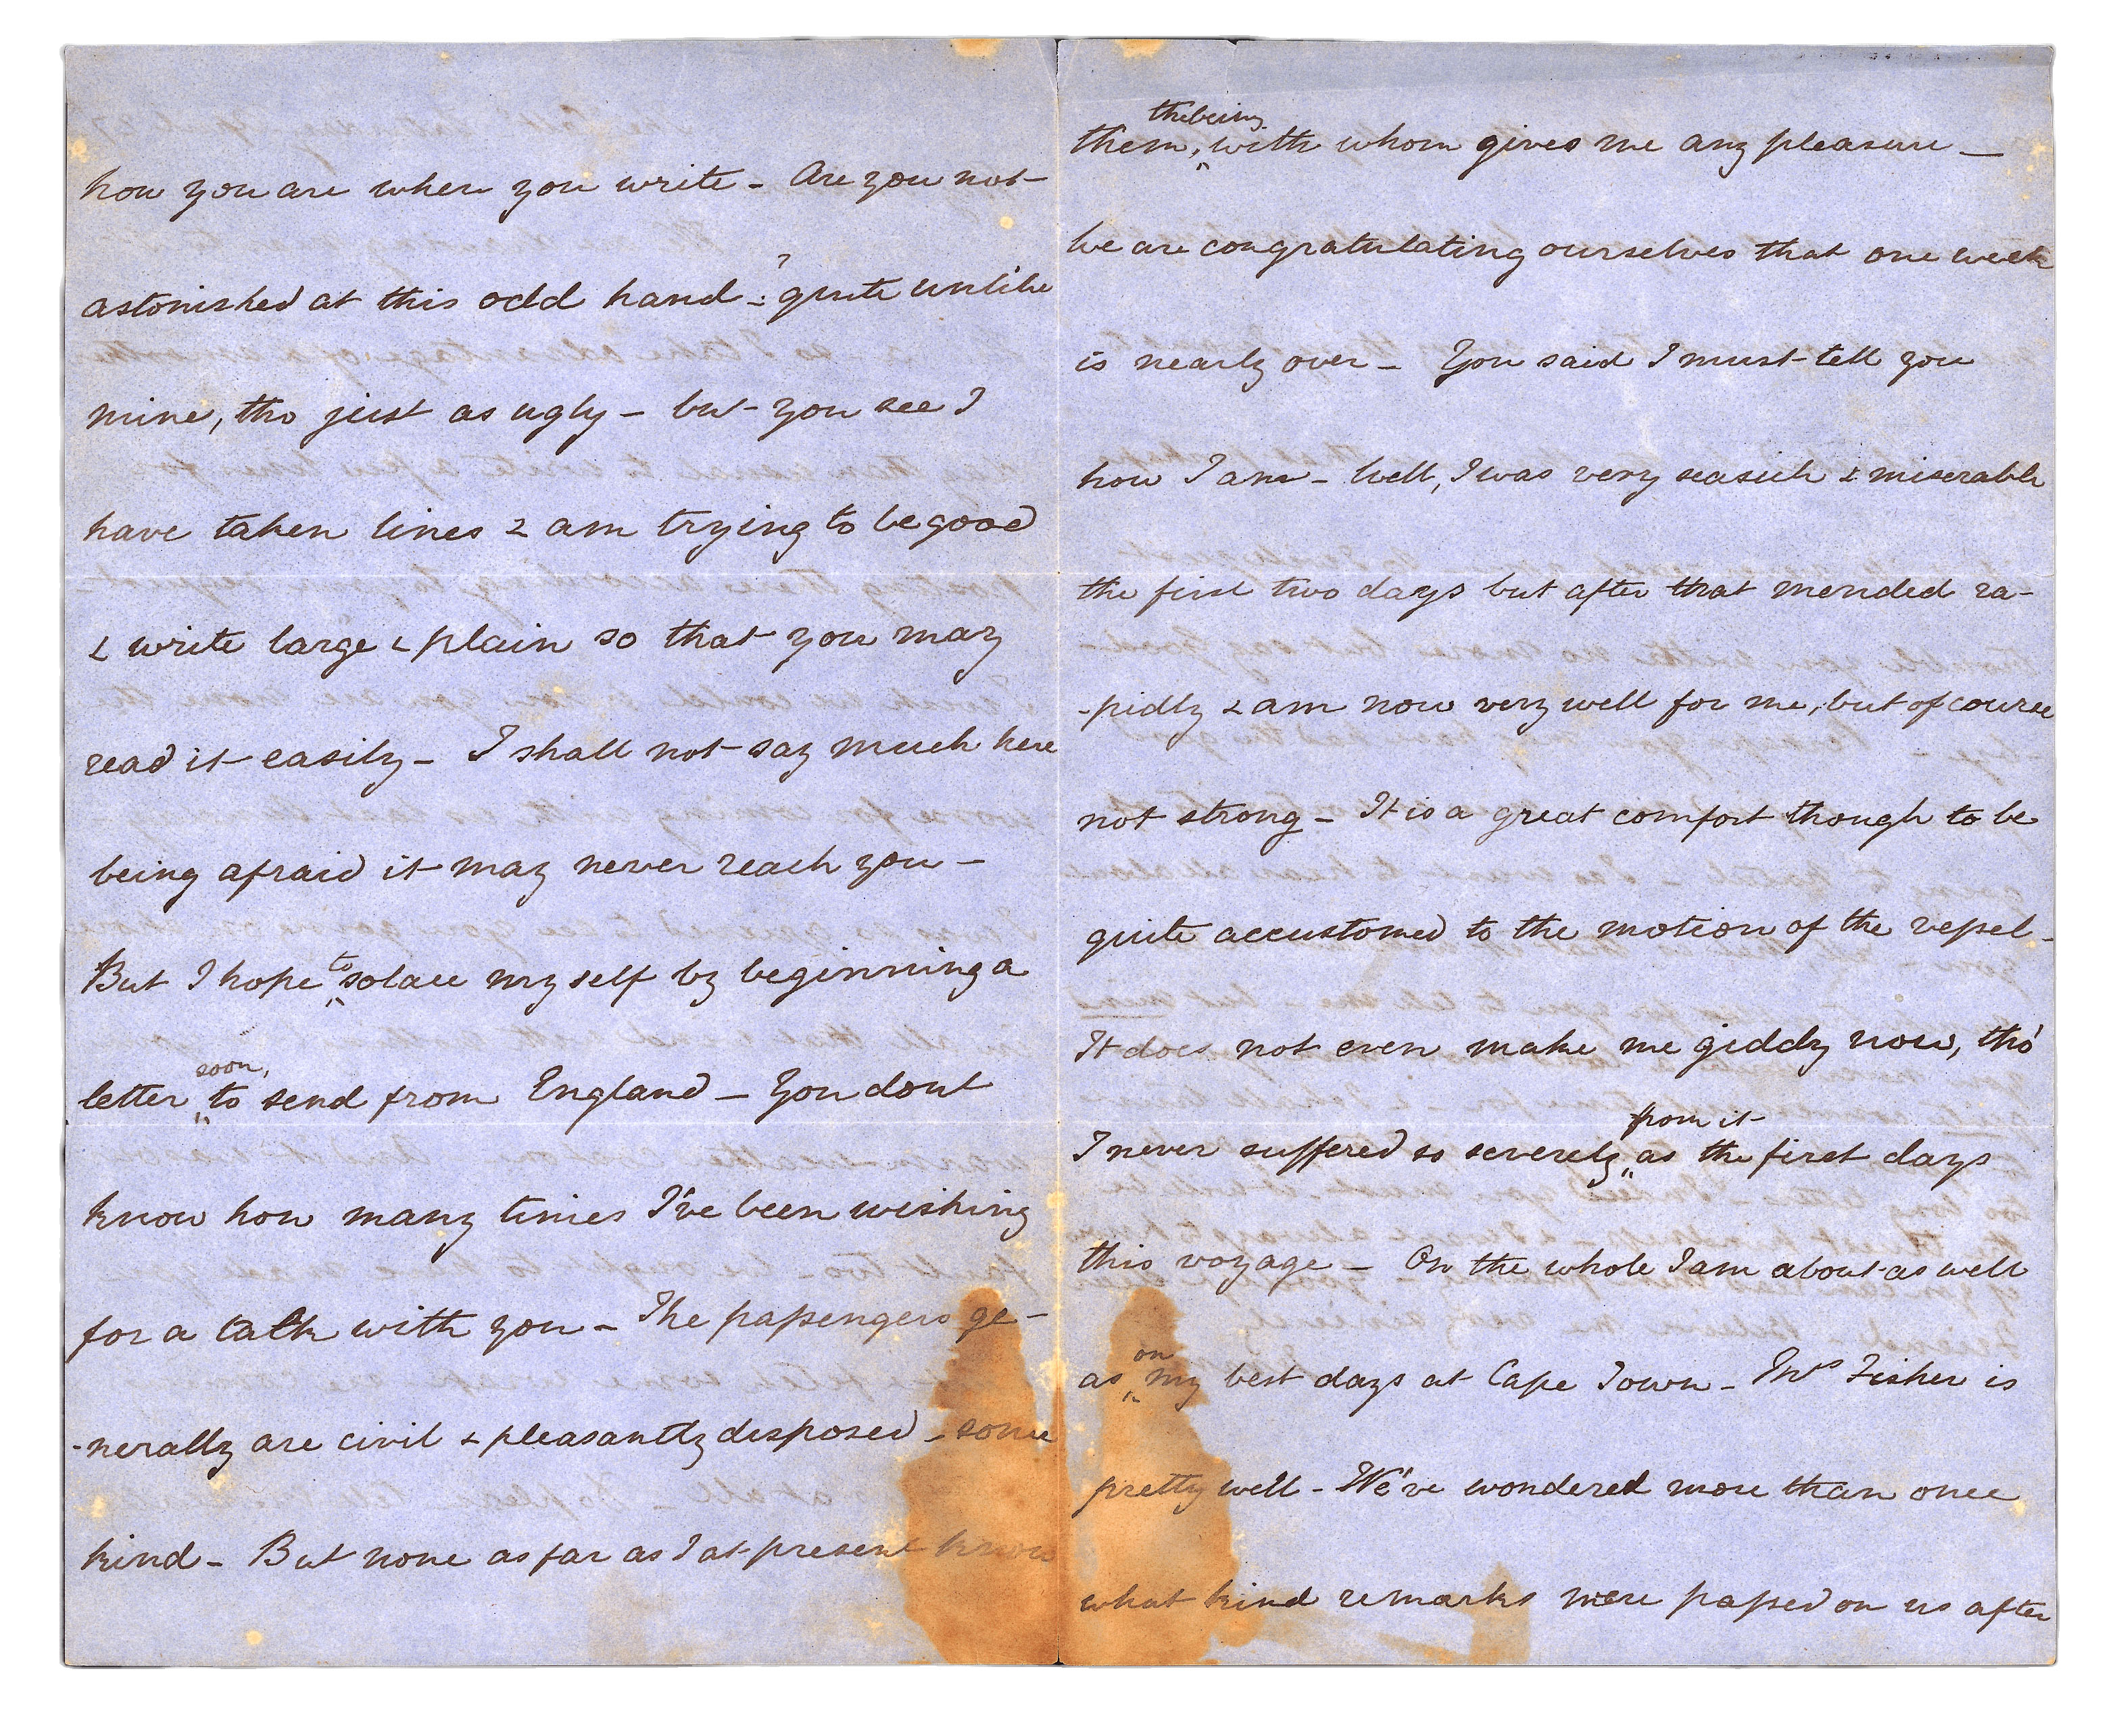 how you are when you write - Are you not
astonished at this odd hand -? quite unlike
mine, tho just as ugly - but you see I
have taken lines & am trying to be good
& write large & plain so that you may
read it easily - I shall not say much here
being afraid it may never reach you -
But I hope to solace myself by beginning a
letter soon, to send from England - You dont
know how many times I've been wishing
for a talk with you - The passengers ge-
-nerally are civil & pleasantly disposed - some
kind - But none as far as I at present know
them, the being with whom gives me any pleasure -
We are congratulating ourselves that one week
is nearly over - You said I must tell you
how I am - Well, I was very seasick & miserable
the first two days but after that mended ra-
-pidly & am now very well for me, but of course
not strong - It is a great comfort though to be
quite accustomed to the motion of the vessel -
It does not even make me giddy now, tho'
I never suffered so severely from it as the first days
this voyage - On the whole I am about as well
as on my best days at Cape Town - Mrs Fisher is
pretty well - We've wondered more than once
what kind remarks were passed on us after